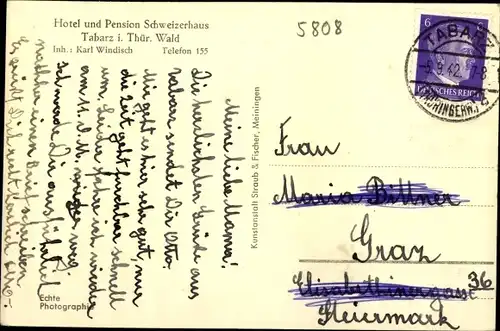 Hotel und Pension Schweizerhaus
Tabarz i. Thür. Wald
Inh.: Karl Windisch Telefon 155
5808
6 6
TABARZ
42
DEUTSCHES REICH
(THÜRINGERW.)
Meine liebe Mama!
Die herzlichsten Grüße aus
Tabarz sendet Dir Otto.
Mir geht es hier sehr gut, nur
die Zeit geht furchtbar schnell
um. Leider fahre ich wieder
am 11. d. M. wieder weg
schreibe Dir ausführlich
nachher einen Brief
Es grüßt Dich recht herzlich Otto.
Echte
Photographie
Kunstanstalt Straub & Fischer, Meiningen
Frau
Maria Bittner
Graz
Elisabethinergasse 36
Steiermark